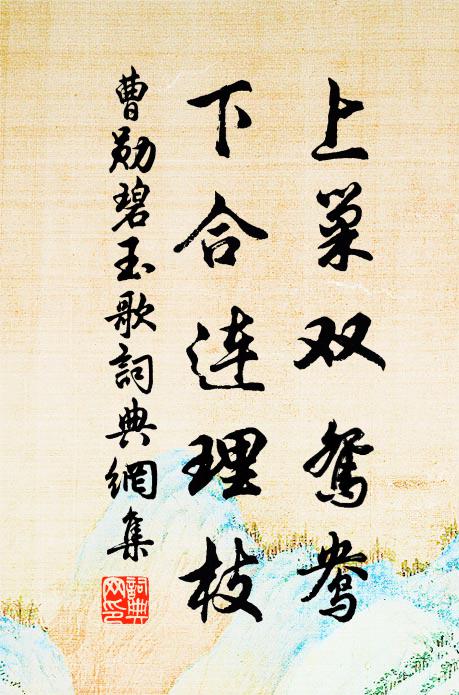 上巢双鸳鸯
下合连理枝
曹勋碧玉歌詞典網集
詞典